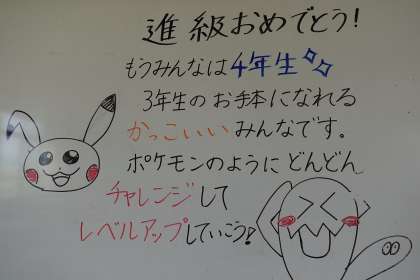 進級おめでとう!
もうみんなは4年生
3年生のお手本になれる
かっこいいみんなです。
ポケモンのようにどんどん
チャレンジして
レベルアップしていこう!